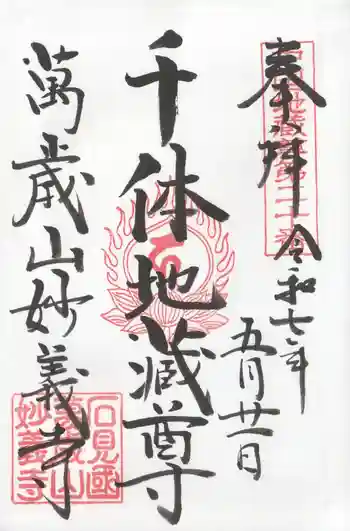 奉拝
令和七年
五月廿一日
千体地蔵尊
萬歳山妙義寺
石見國
萬歳山
妙義寺